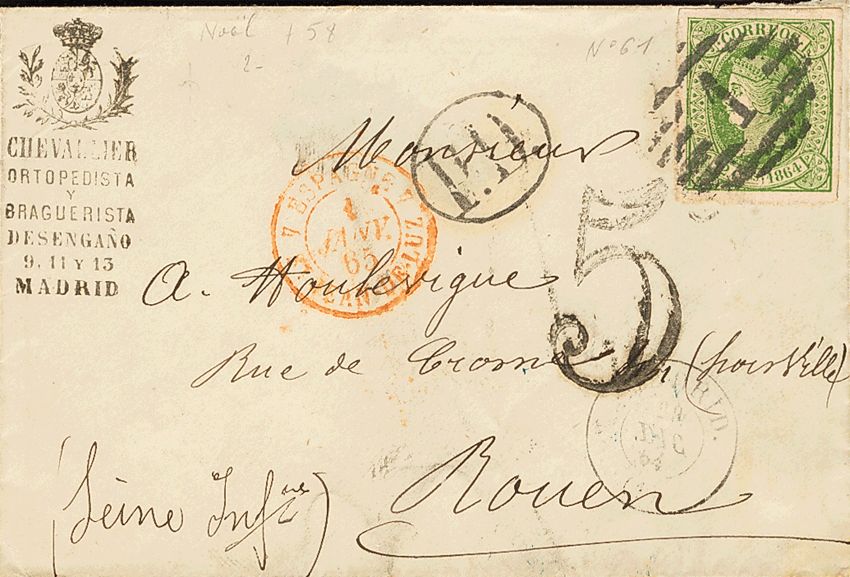 Noël + 58
2-
N° 61
CORREOS
1864
1
P.D.
CHEVALLIER
ORTOPEDISTA
Y
BRAGUERISTA
DESENGAÑO
9, 11 Y 13
MADRID
ESPAGNE
4
JANV.
65
ST JEAN-DE-LUZ
5
Monsieur
A. Houlevigue
Rue de Crosne (hors Ville)
Rouen
(Seine Infre)
DIC